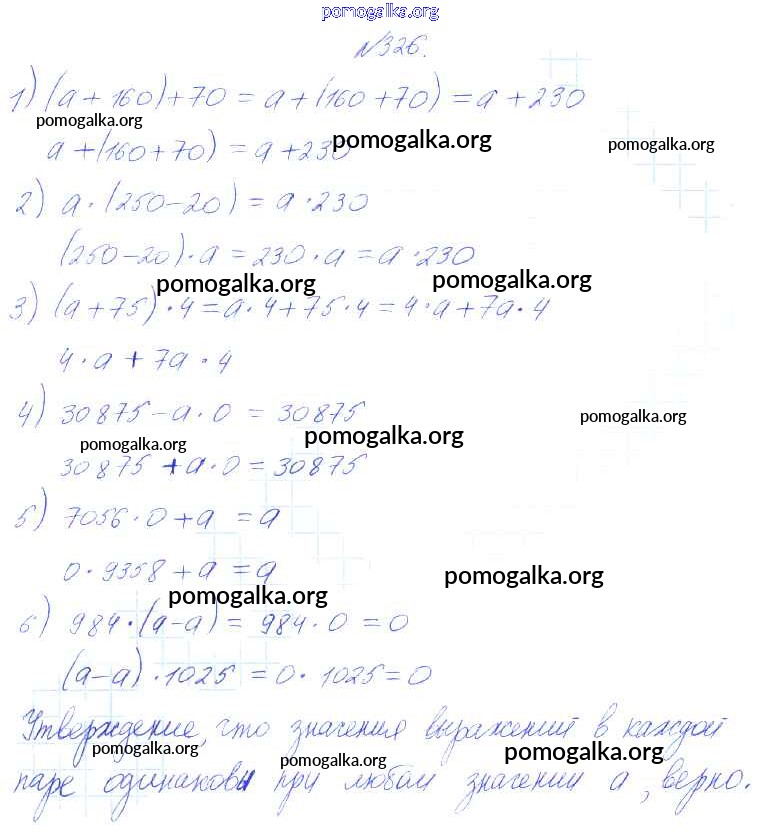 pomogalka.org
№326.
1) (a + 160) + 70 = a + (160 + 70) = a + 230
pomogalka.org
pomogalka.org
pomogalka.org
a + (160 + 70) = a + 230
2) a · (250 - 20) = a · 230
(250 - 20) · a = 230 · a = a · 230
pomogalka.org
pomogalka.org
3) (a + 75) · 4 = a · 4 + 75 · 4 = 4 · a + 7a · 4
4 · a + 7a · 4
4) 30875 - a · 0 = 30875
pomogalka.org
pomogalka.org
pomogalka.org
30875 + a · 0 = 30875
5) 7056 · 0 + a = a
0 · 9358 + a = a
pomogalka.org
pomogalka.org
6) 984 · (a - a) = 984 · 0 = 0
(a - a) · 1025 = 0 · 1025 = 0
Утверждение, что значения выражений в каждой
pomogalka.org
pomogalka.org
pomogalka.org
паре одинаковы при любом значении a, верно.